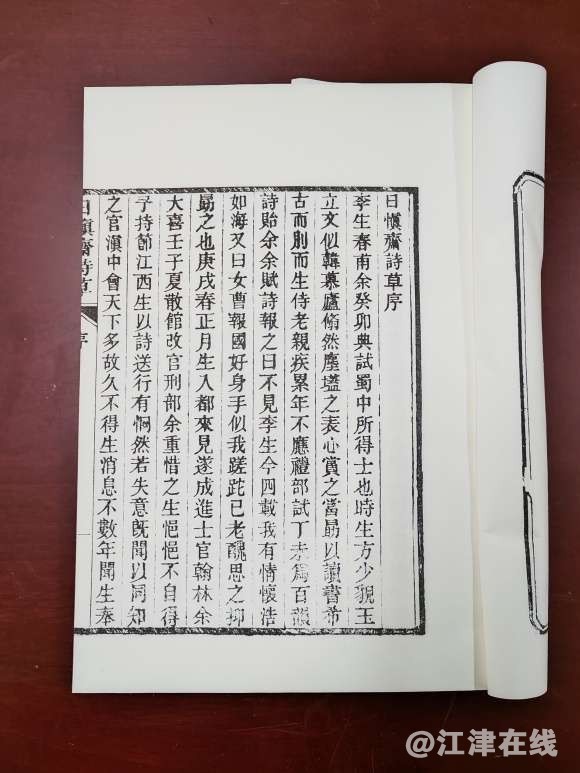 日愼齋詩草序
李生春甫余癸卯典試蜀中所得士也時生方少貌玉
立文似韓慕廬翛然塵壒之表心賞之嘗勗以讀書希
古而別而生侍老親疾累年不應禮部試丁未爲百韻
詩貽余余賦詩報之曰不見李生今四載我有情懷浩
如海又曰女曹報國好身手似我蹉跎已老醜思之抑
勗之也庚戌春正月生入都來見遂成進士官翰林余
大喜壬子夏散館改官刑部余重惜之生悒悒不自得
子持節江西生以詩送行有惘然若失意旣聞以同知
之官漢中會天下多故久不得生消息不數年聞生奉
日愼齋詩草
序
@江津在线